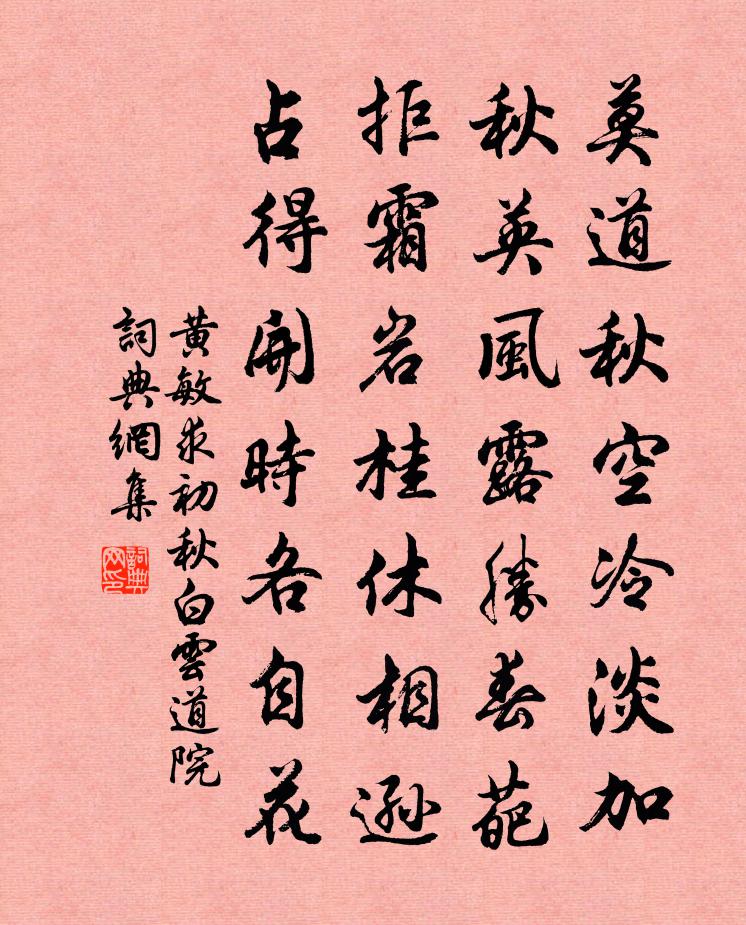 莫道秋空冷淡加
秋英風露勝春葩
拒霜岩桂休相遜
占得開時各自花
黃敏求初秋白雲道院
詞典網集
詞典网印